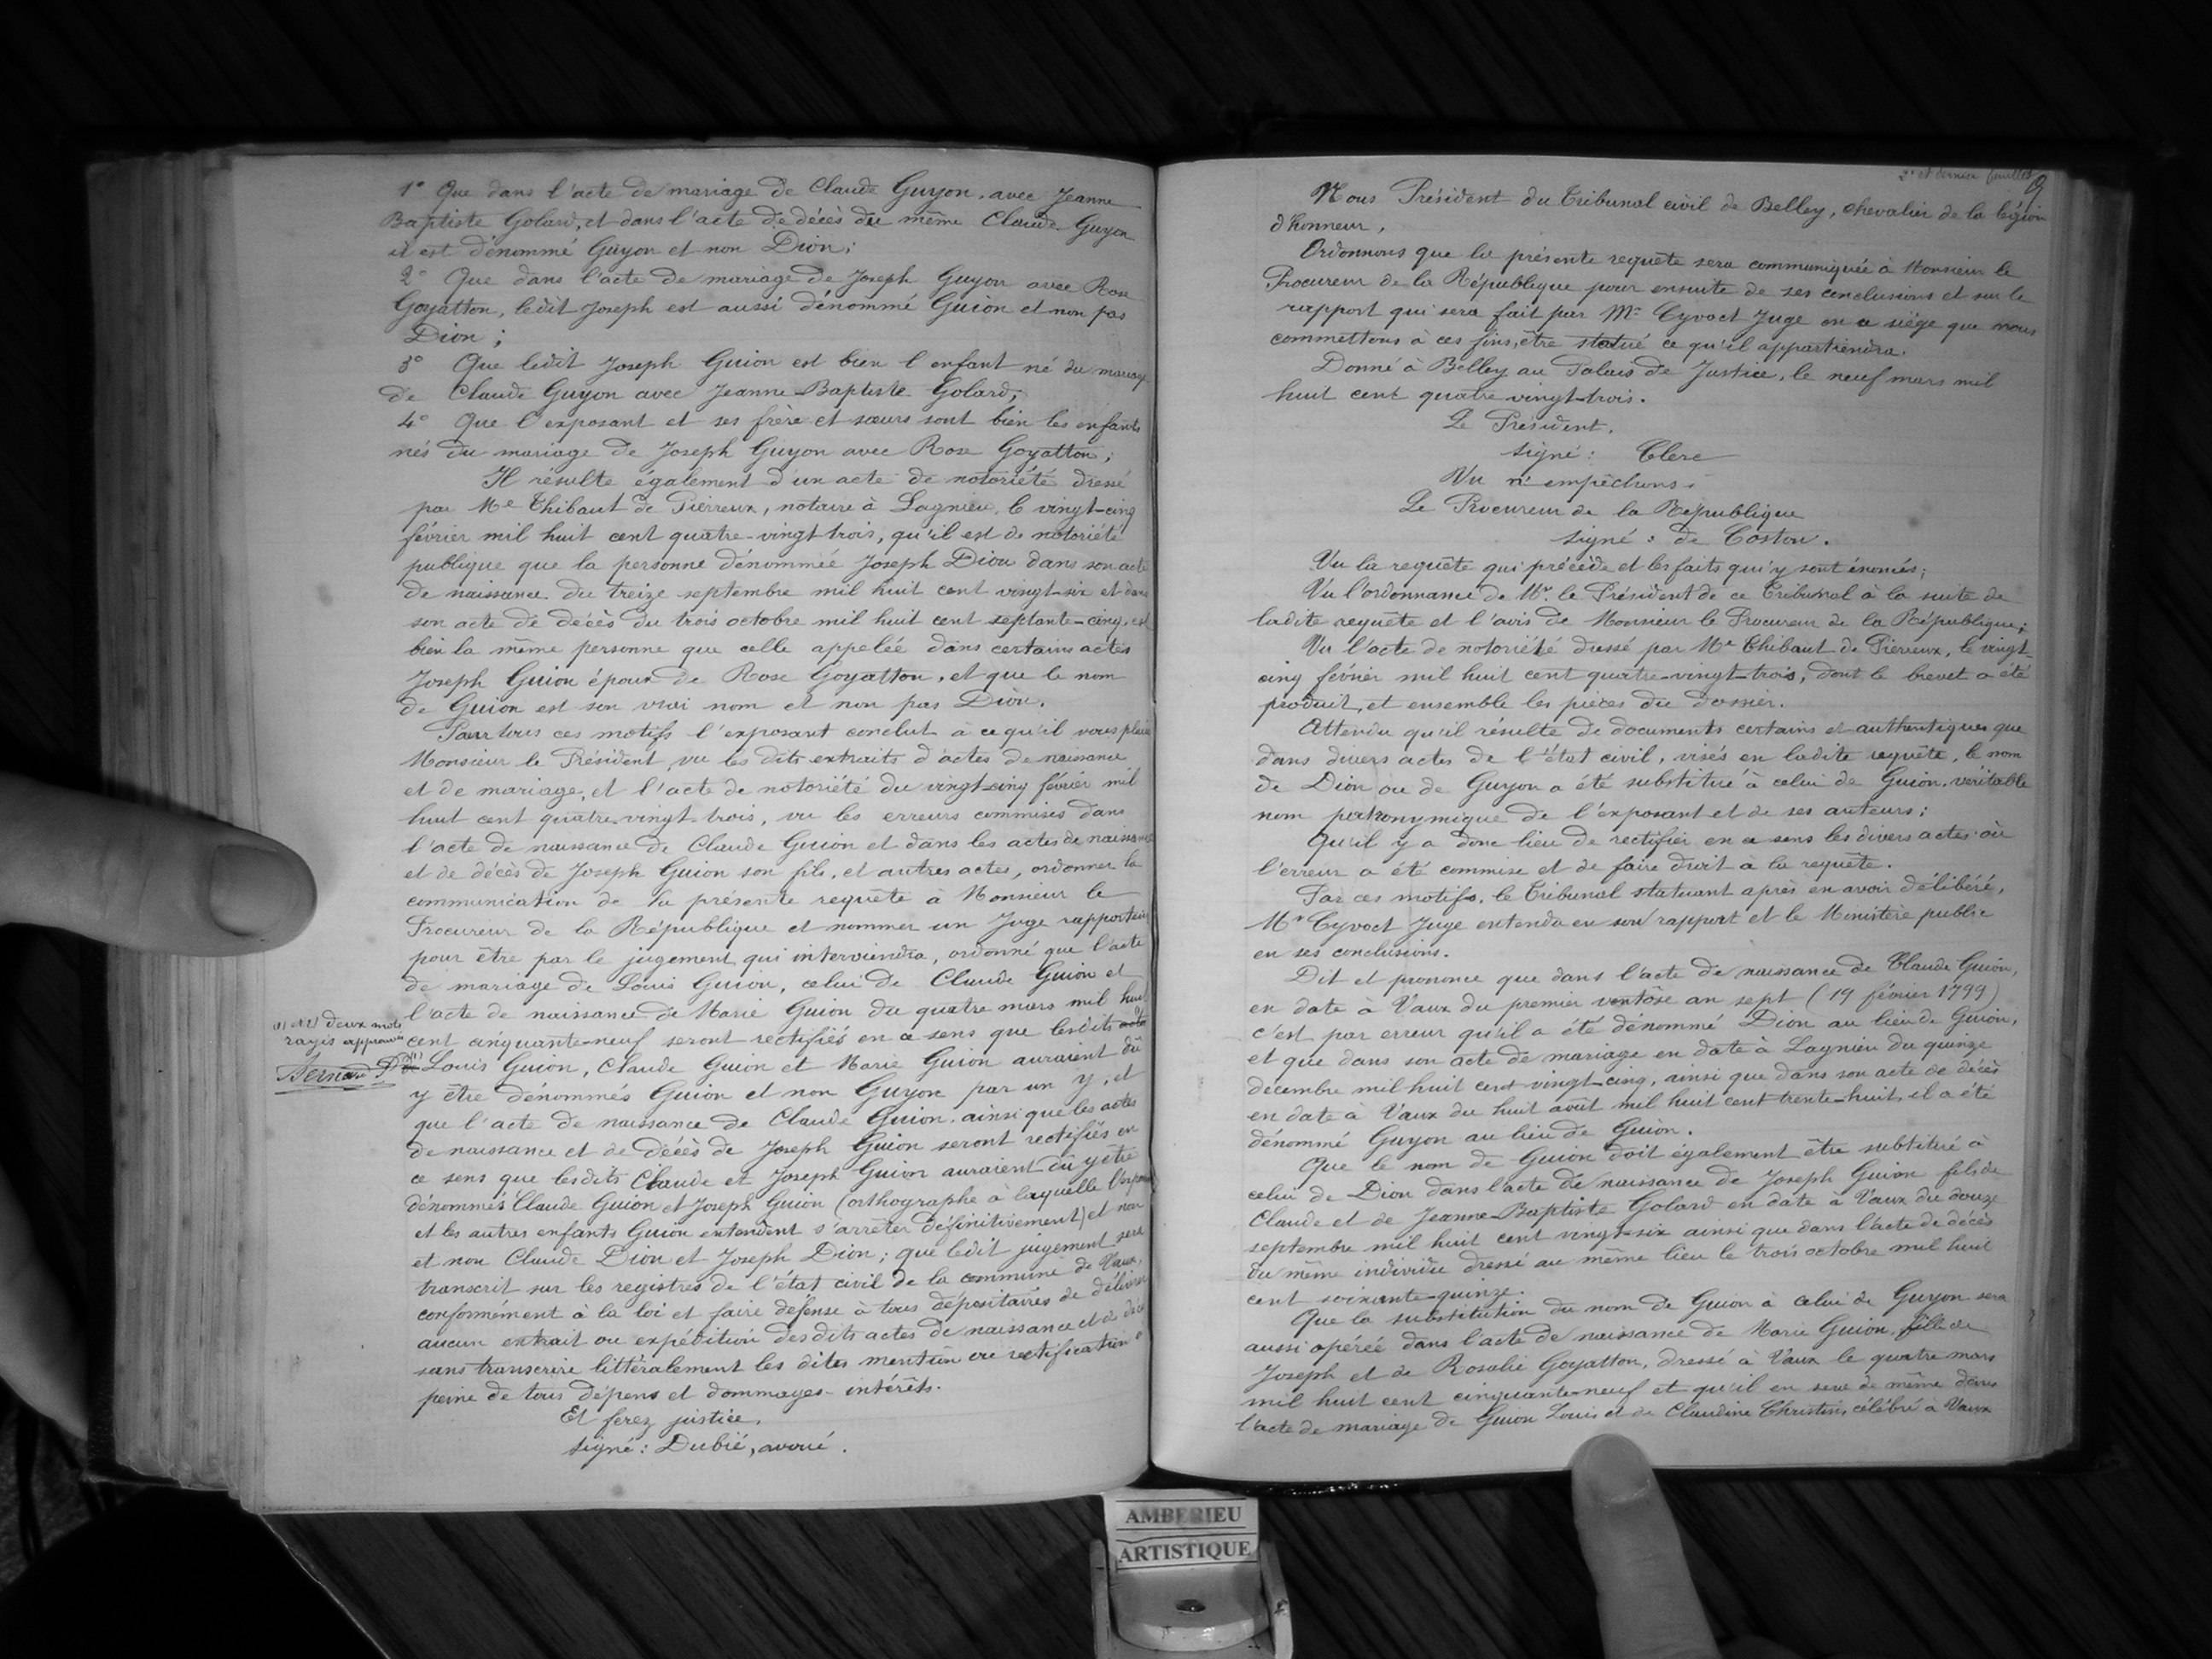 1° Que dans l'acte de mariage de Claude Guyon, avec Jeanne
Baptiste Golard, et dans l'acte de décès du même Claude Guyon
il est dénommé Guyon et non Dion;
2° Que dans l'acte de mariage de Joseph Guyon avec Rose
Goyatton, ledit Joseph est aussi dénommé Guion et non pas
Dion;
3° Que ledit Joseph Guion est bien l'enfant né du mariag
de Claude Guyon avec Jeanne-Baptiste Golard;
4° Que l'exposant et ses frère et sœurs sont bien les enfants
nés du mariage de Joseph Guyon avec Rose Goyatton;
Il résulte également d'un acte de notoriété dressé
par Me Thibaut de Pierreux, notaire à Lagnieu, le vingt-cinq
février mil huit cent quatre-vingt-trois, qu'il est de notoriété
publique que la personne dénommée Joseph Dion dans son acte
de naissance du treize septembre mil huit cent vingt-six et dans
son acte de décès du trois octobre mil huit cent septante-cinq, est
bien la même personne que celle appelée dans certains actes
Joseph Guion époux de Rose Goyatton, et que le nom
de Guion est son vrai nom et non pas Dion.
Pour tous ces motifs l'exposant conclut à ce qu'il vous plaise
Monsieur le Président, vu les dits extraits d'actes de naissance
et de mariage, et l'acte de notoriété du vingt-cinq février mil
huit cent quatre-vingt-trois, vu les erreurs commises dans
l'acte de naissance de Claude Guion et dans les actes de naissance
et de décès de Joseph Guion son fils, et autres actes, ordonner la
communication de la présente requête à Monsieur le
Procureur de la République et nommer un Juge rapporteur
pour être par le jugement qui interviendra, ordonné que l'acte
de mariage de Louis Guion, celui de Claude Guion et
l'acte de naissance de Marie Guion du quatre mars mil huit
cent cinquante-neuf seront rectifiés en ce sens que lesdits acte
Louis Guion, Claude Guion et Marie Guion auraient dû
y être dénommés Guion et non Guyon par un y, et
que l'acte de naissance de Claude Guion, ainsi que les actes
de naissance et de décès de Joseph Guion seront rectifiés en
ce sens que lesdits Claude et Joseph Guion auraient dû y être
dénommés Claude Guion et Joseph Guion (orthographe à laquelle l'exposant
et les autres enfants Guion entendent s'arrêter définitivement) et non
et non Claude Dion et Joseph Dion; que ledit jugement sera
transcrit sur les registres de l'état civil de la commune de Vaux,
conformément à la loi et faire défense à tous dépositaires de délivrer
aucun extrait ou expédition desdits actes de naissance et de décès
sans transcrire littéralement les dites mention ou rectification à
peine de tous dépens et dommages-intérêts.
Et ferez justice.
signé: Dubié, avoué.
deux mots
rayés approuvés
Bernard
2e et dernier feuillet
Nous Président du Tribunal civil de Belley, chevalier de la légion
d'honneur,
Ordonnons que la présente requête sera communiquée à Monsieur le
Procureur de la République pour ensuite de ses conclusions et sur le
rapport qui sera fait par Mr Cyvoct Juge en ce siège que nous
commettons à ces fins, être statué ce qu'il appartiendra.
Donné à Belley au Palais de Justice, le neuf mars mil
huit cent quatre-vingt-trois.
Le Président,
signé: Clerc
Vu n'empêchons.
Le Procureur de la République
signé: de Coston.
Vu la requête qui précède et les faits qui y sont énoncés;
Vu l'ordonnance de Mr. le Président de ce Tribunal à la suite de
ladite requête et l'avis de Monsieur le Procureur de la République;
Vu l'acte de notoriété dressé par Me Thibaut de Pierreux, le vingt-
cinq février mil huit cent quatre-vingt-trois, dont le brevet a été
produit, et ensemble les pièces du dossier.
Attendu qu'il résulte de documents certains et authentiques que
dans divers actes de l'état civil, visés en ladite requête, le nom
de Dion ou de Guyon a été substitué à celui de Guion, véritable
nom patronymique de l'exposant et de ses auteurs;
Qu'il y a donc lieu de rectifier en ce sens les divers actes où
l'erreur a été commise et de faire droit à la requête.
Par ces motifs, le Tribunal statuant après en avoir délibéré,
Mr Cyvoct Juge entendu en son rapport et le Ministère public
en ses conclusions.
Dit et prononce que dans l'acte de naissance de Claude Guion,
en date à Vaux du premier ventôse an sept (19 février 1799)
c'est par erreur qu'il a été dénommé Dion au lieu de Guion,
et que dans son acte de mariage en date à Lagnieu du quinze
décembre mil huit cent vingt-cinq, ainsi que dans son acte de décès
en date à Vaux du huit août mil huit cent trente-huit, il a été
dénommé Guyon au lieu de Guion.
Que le nom de Guion doit également être substitué à
celui de Dion dans l'acte de naissance de Joseph Guion fils de
Claude et de Jeanne-Baptiste Golard en date à Vaux du douze
septembre mil huit cent vingt-six ainsi que dans l'acte de décès
du même individu dressé au même lieu le trois octobre mil huit
cent soixante-quinze.
Que la substitution du nom de Guion à celui de Guyon sera
aussi opérée dans l'acte de naissance de Marie Guion, fille de
Joseph et de Rosalie Goyatton, dressé à Vaux le quatre mars
mil huit cent cinquante-neuf et qu'il en sera de même dans
l'acte de mariage de Guion Louis et de Claudine Christin, célébré à Vaux
AMBERIEU
ARTISTIQUE